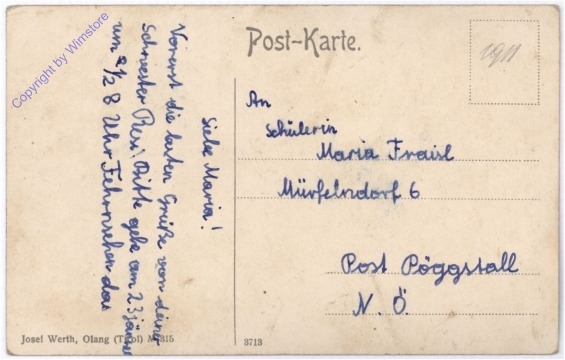 Copyright by Wimstore
Post-Karte.
1911
An
Schülerin
Maria Fraisl
Mürfelndorf 6
Post Pöggstall
N. Ö.
Liebe Maria!
Vorerst die besten Grüße von deiner
Schwester Resi. Bitte gehe am 23 jänner
um 1/2 8 Uhr Fehrnsehen das
Josef Werth, Olang (Tirol) M 315
3713